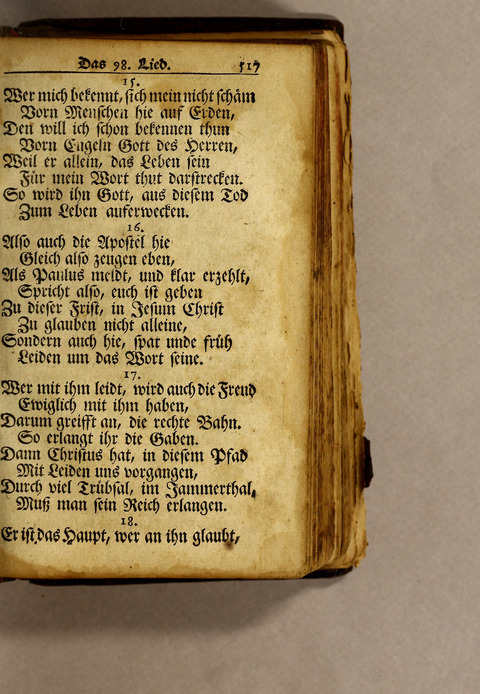 Das 98. Lied. 517
15.
Wer mich bekennt, sich mein nicht schäm
Vorn Menschen hie auf Erden,
Den will ich schon bekennen thun
Vorn Engeln Gott des Herren,
Weil er allein, das Leben sein
Für mein Wort thut darstrecken.
So wird ihn Gott, aus diesem Tod
Zum Leben auferwecken.
16.
Also auch die Apostel hie
Gleich also zeugen eben,
Als Paulus meldt, und klar erzehlt,
Spricht also, euch ist geben
Zu dieser Frist, in Jesum Christ
Zu glauben nicht alleine,
Sondern auch hie, spat unde früh
Leiden um das Wort seine.
17.
Wer mit ihm leidt, wird auch die Freud
Ewiglich mit ihm haben,
Darum greifft an, die rechte Bahn.
So erlangt ihr die Gaben.
Dann Christus hat, in diesem Pfad
Mit Leiden uns vorgangen,
Durch viel Trübsal, im Jammerthal,
Muß man sein Reich erlangen.
18.
Er ist das Haupt, wer an ihn glaubt,